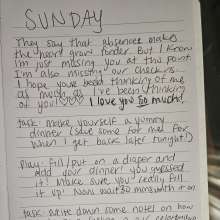 SUNDAY
They say that absence makes
the heart grow fonder. But I know
I'm just missing you at this point
I'm also missing our checkers.
I hope you've been thinking of me
as much as I've been thinking
of you! I love you so much!
Task: Make yourself a yummy
dinner (save some for me! For
when I get back later tonight!)
Play: Fill/put on a diaper and
add your dinner! you
it! Make sure you really fill
it up! Now wait 30 mins with it on
Task: Write down some notes on how